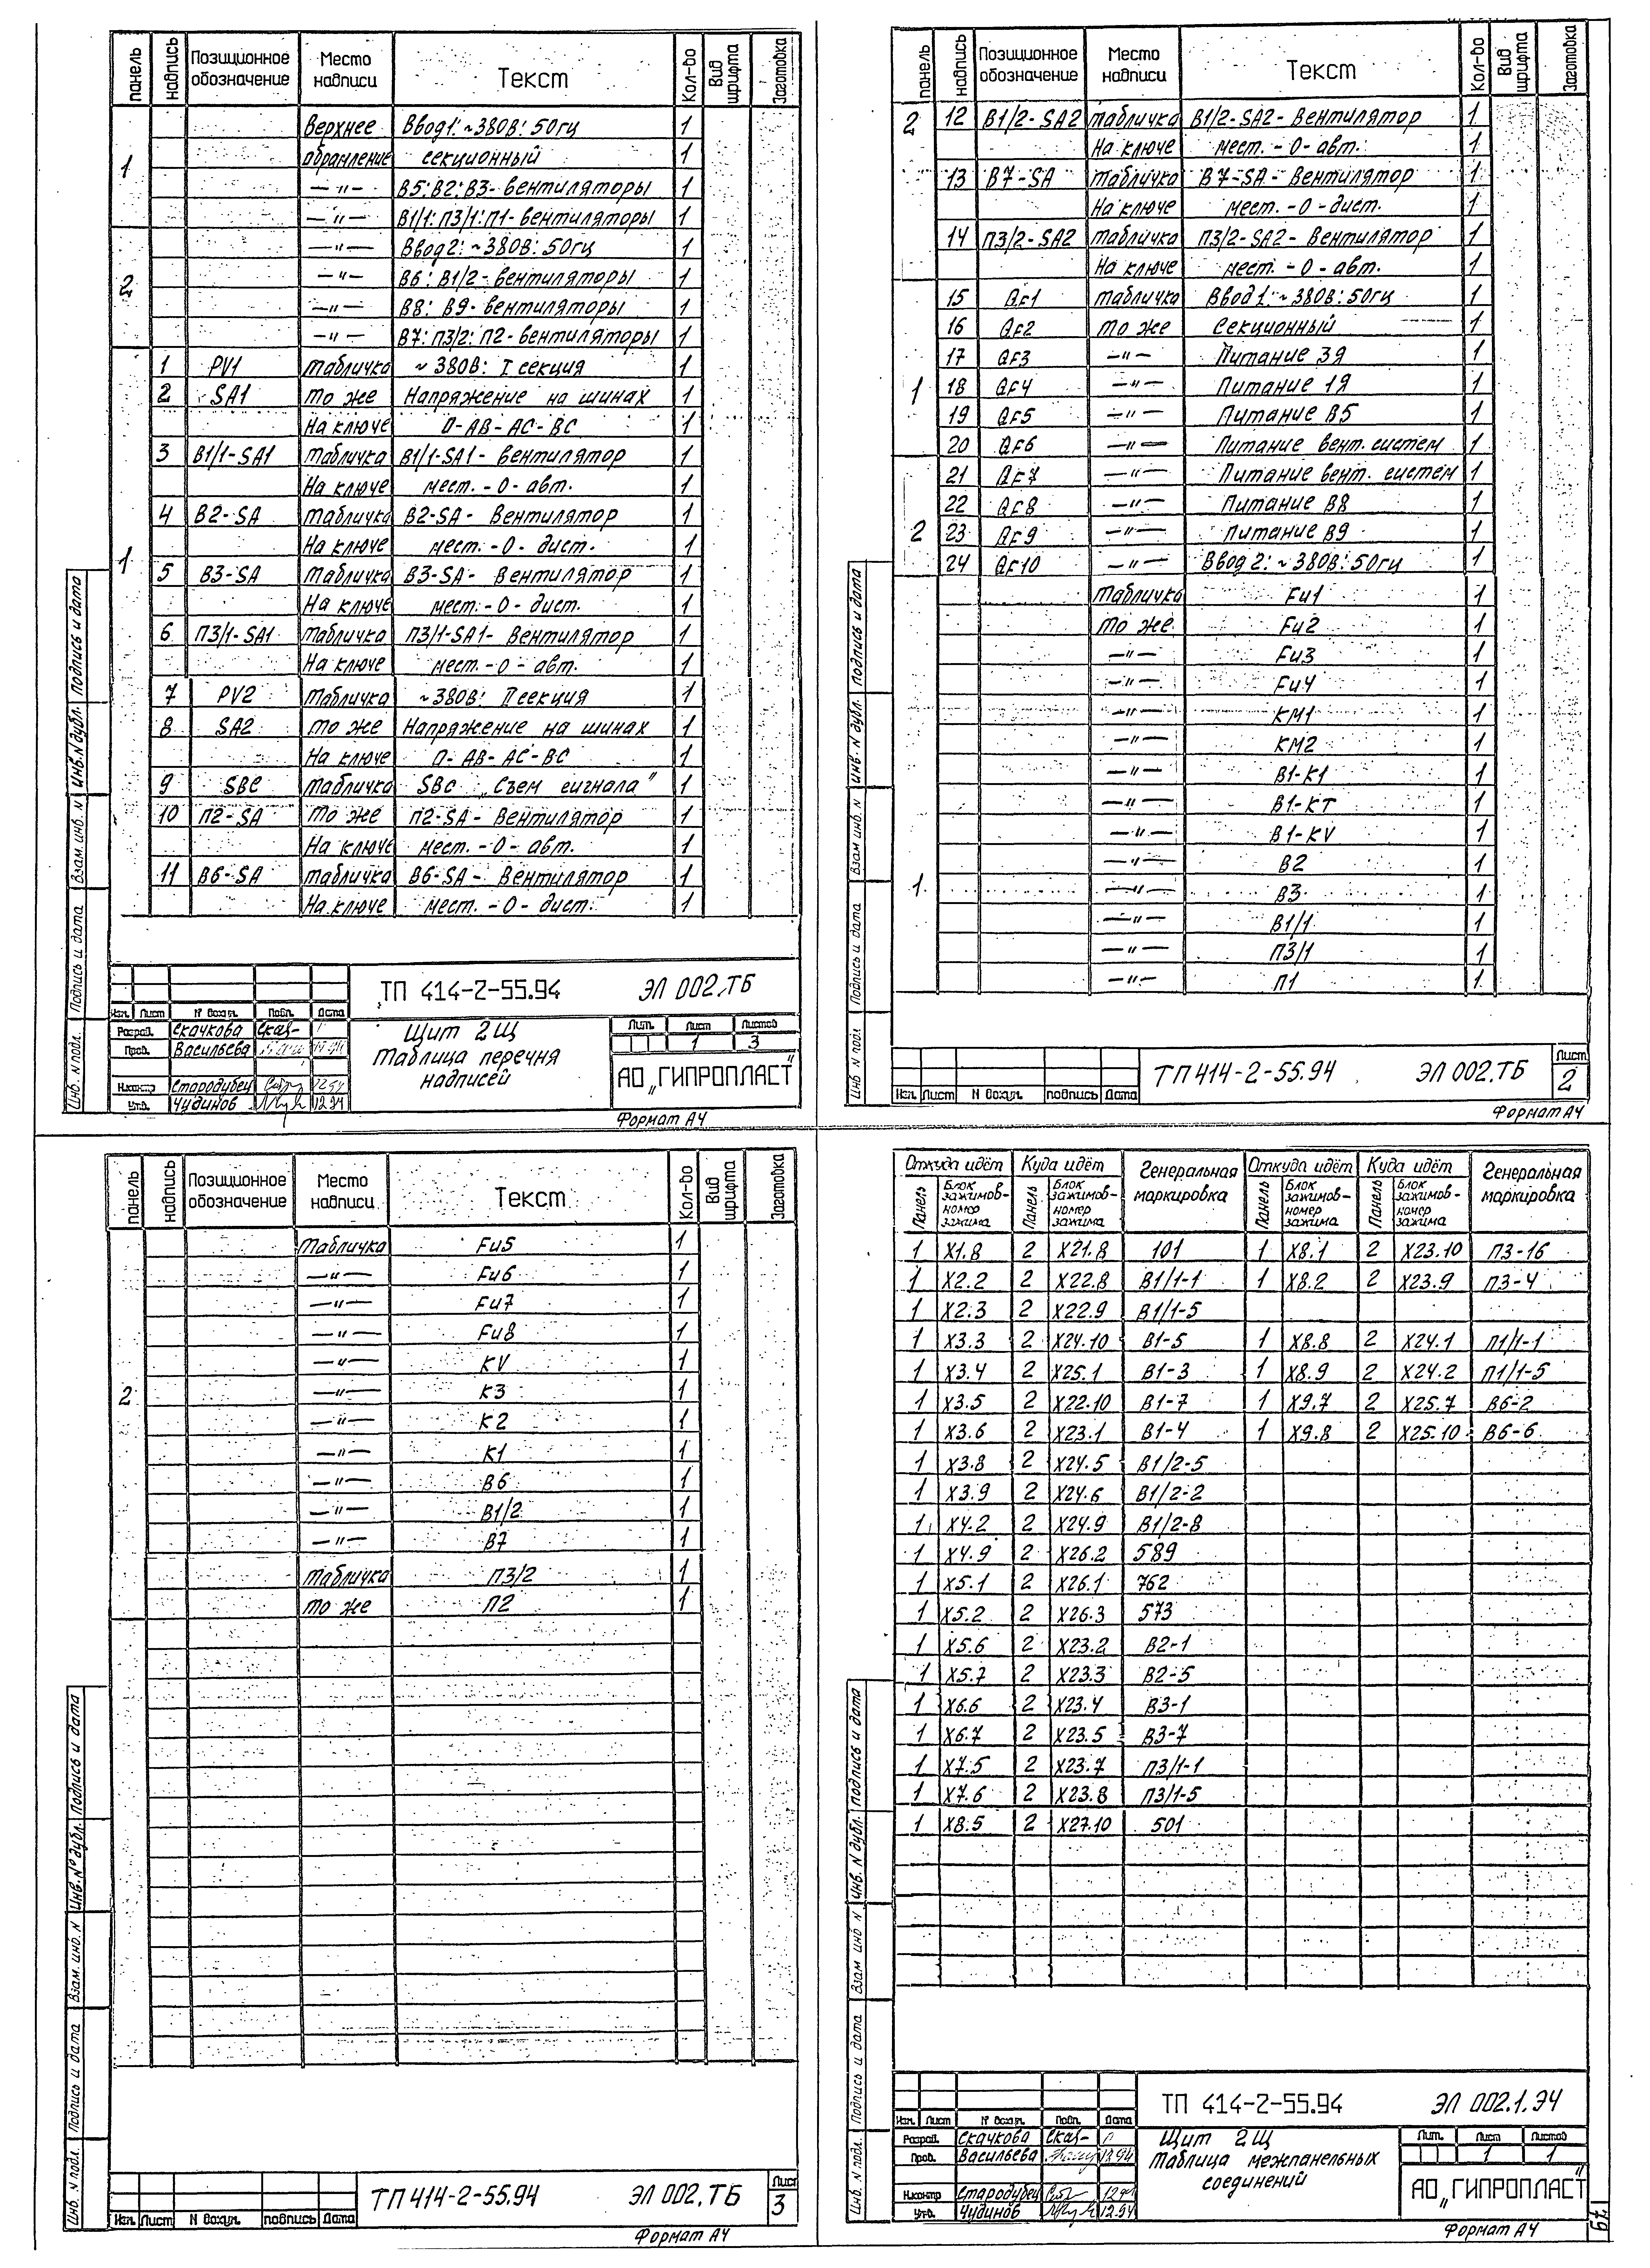 панель надпись Позиционное обозначение Место надписи Текст Кол-во Вид шрифта Заготовка
1 Верхнее Ввод1:~380В:50гц 1
обрамление секционный 1
—"— В5:В2:В3-вентиляторы 1
—"— В1/1:П3/1:П1-вентиляторы 1
2 —"— Ввод2:~380В:50гц 1
—"— В6:В1/2-вентиляторы 1
—"— В8:В9-вентиляторы 1
—"— В7:П3/2:П2-вентиляторы 1
1 1 PV1 табличка ~380В: I секция 1
2 SA1 то же Напряжение на шинах 1
На ключе О-АВ-АС-ВС 1
3 В1/1-SA1 табличка В1/1-SA1-вентилятор 1
На ключе мест.-О-авт. 1
4 В2-SA табличка В2-SA-Вентилятор 1
На ключе мест.-О-дист. 1
5 В3-SA табличка В3-SA-Вентилятор 1
На ключе мест.-О-дист. 1
6 П3/1-SA1 табличка П3/1-SA1-Вентилятор 1
На ключе мест.-О-авт. 1
7 PV2 табличка ~380В: II секция 1
8 SA2 то же Напряжение на шинах 1
На ключе О-АВ-АС-ВС 1
9 SBC табличка SBC „Съем сигнала" 1
10 П2-SA То же П2-SA-Вентилятор 1
На ключе мест.-О-авт. 1
11 В6-SA табличка В6-SA-Вентилятор 1
На ключе мест.-О-дист. 1
Инв. N подл. Подпись и дата Взам. инв. N Инв. N дубл. Подпись и дата
ТП 414-2-55.94 ЭЛ 002.ТБ
Изм. Лист N докум. Подп. Дата
Разраб. Скачкова
Пров. Васильева
Н.контр Стародубец 12.94
Утв. Чудинов 12.94
Щит 2Щ
Таблица перечня
надписей
Лит. Лист Листов
1 3
АО „ГИПРОПЛАСТ"
Формат А4
панель надпись Позиционное обозначение Место надписи Текст Кол-во Вид шрифта Заготовка
2 12 В1/2-SA2 табличка В1/2-SA2-Вентилятор 1
На ключе мест.-О-авт. 1
13 В7-SA табличка В7-SA-Вентилятор 1
На ключе мест.-О-дист. 1
14 П3/2-SA2 табличка П3/2-SA2-Вентилятор 1
На ключе мест.-О-авт. 1
1 15 QF1 табличка Ввод1:~380В:50гц 1
16 QF2 то же Секционный 1
17 QF3 —"— Питание 3Я 1
18 QF4 —"— Питание 1Я 1
19 QF5 —"— Питание В5 1
20 QF6 —"— Питание вент. систем 1
2 21 QF7 —"— Питание вент. систем 1
22 QF8 —"— Питание В8 1
23 QF9 —"— Питание В9 1
24 QF10 —"— Ввод 2:~380В:50гц 1
1 Табличка Fu1 1
то же Fu2 1
—"— Fu3 1
—"— Fu4 1
—"— КМ1 1
—"— КМ2 1
—"— В1-К1 1
—"— В1-КТ 1
—"— В1-KV 1
—"— В2 1
—"— В3 1
—"— В1/1 1
—"— П3/1 1
—"— П1 1
Инв. N подл. Подпись и дата Взам. инв. N Инв. N дубл. Подпись и дата
Изм. Лист N докум. подпись Дата
ТП 414-2-55.94 ЭЛ 002.ТБ
Лист 2
Формат А4
панель надпись Позиционное обозначение Место надписи Текст Кол-во Вид шрифта Заготовка
2 Табличка Fu5 1
—"— Fu6 1
—"— Fu7 1
—"— Fu8 1
—"— KV 1
—"— К3 1
—"— К2 1
—"— К1 1
—"— В6 1
—"— В1/2 1
—"— В7 1
табличка П3/2 1
то же П2 1
Инв. N подл. Подпись и дата Взам. инв. N Инв. N° дубл. Подпись и дата
Изм. Лист N докум. подпись Дата
ТП 414-2-55.94 ЭЛ 002.ТБ
Лист 3
Формат А4
Откуда идёт Куда идёт Генеральная маркировка Откуда идёт Куда идёт Генеральная маркировка
Панель Блок зажимов-номер зажима Панель Блок зажимов-номер зажима Панель Блок зажимов-номер зажима Панель Блок зажимов-номер зажима
1 Х1.8 2 Х21.8 101 1 Х8.1 2 Х23.10 П3-16
1 Х2.2 2 Х22.8 В1/1-1 1 Х8.2 2 Х23.9 П3-4
1 Х2.3 2 Х22.9 В1/1-5
1 Х3.3 2 Х24.10 В1-5 1 Х8.8 2 Х24.1 П1/1-1
1 Х3.4 2 Х25.1 В1-3 1 Х8.9 2 Х24.2 П1/1-5
1 Х3.5 2 Х22.10 В1-7 1 Х9.7 2 Х25.7 В6-2
1 Х3.6 2 Х23.1 В1-4 1 Х9.8 2 Х25.10 В6-6
1 Х3.8 2 Х24.5 В1/2-5
1 Х3.9 2 Х24.6 В1/2-2
1 Х4.2 2 Х24.9 В1/2-8
1 Х4.9 2 Х26.2 589
1 Х5.1 2 Х26.1 762
1 Х5.2 2 Х26.3 573
1 Х5.6 2 Х23.2 В2-1
1 Х5.7 2 Х23.3 В2-5
1 Х6.6 2 Х23.4 В3-1
1 Х6.7 2 Х23.5 В3-7
1 Х7.5 2 Х23.7 П3/1-1
1 Х7.6 2 Х23.8 П3/1-5
1 Х8.5 2 Х27.10 501
Инв. N подл. Подпись и дата Взам. инв N Инв. N дубл. подпись и дата
ТП 414-2-55.94 ЭЛ 002.1.Э4
Изм. Лист N° докум. Подп. Дата
Разраб. Скачкова
Пров. Васильева 12.94
Н.контр Стародубец
Утв. Чудинов 12.94
Щит 2Щ
Таблица межпанельных
соединений
Лит. Лист Листов
1 1
АО „ГИПРОПЛАСТ"
Формат А4
79